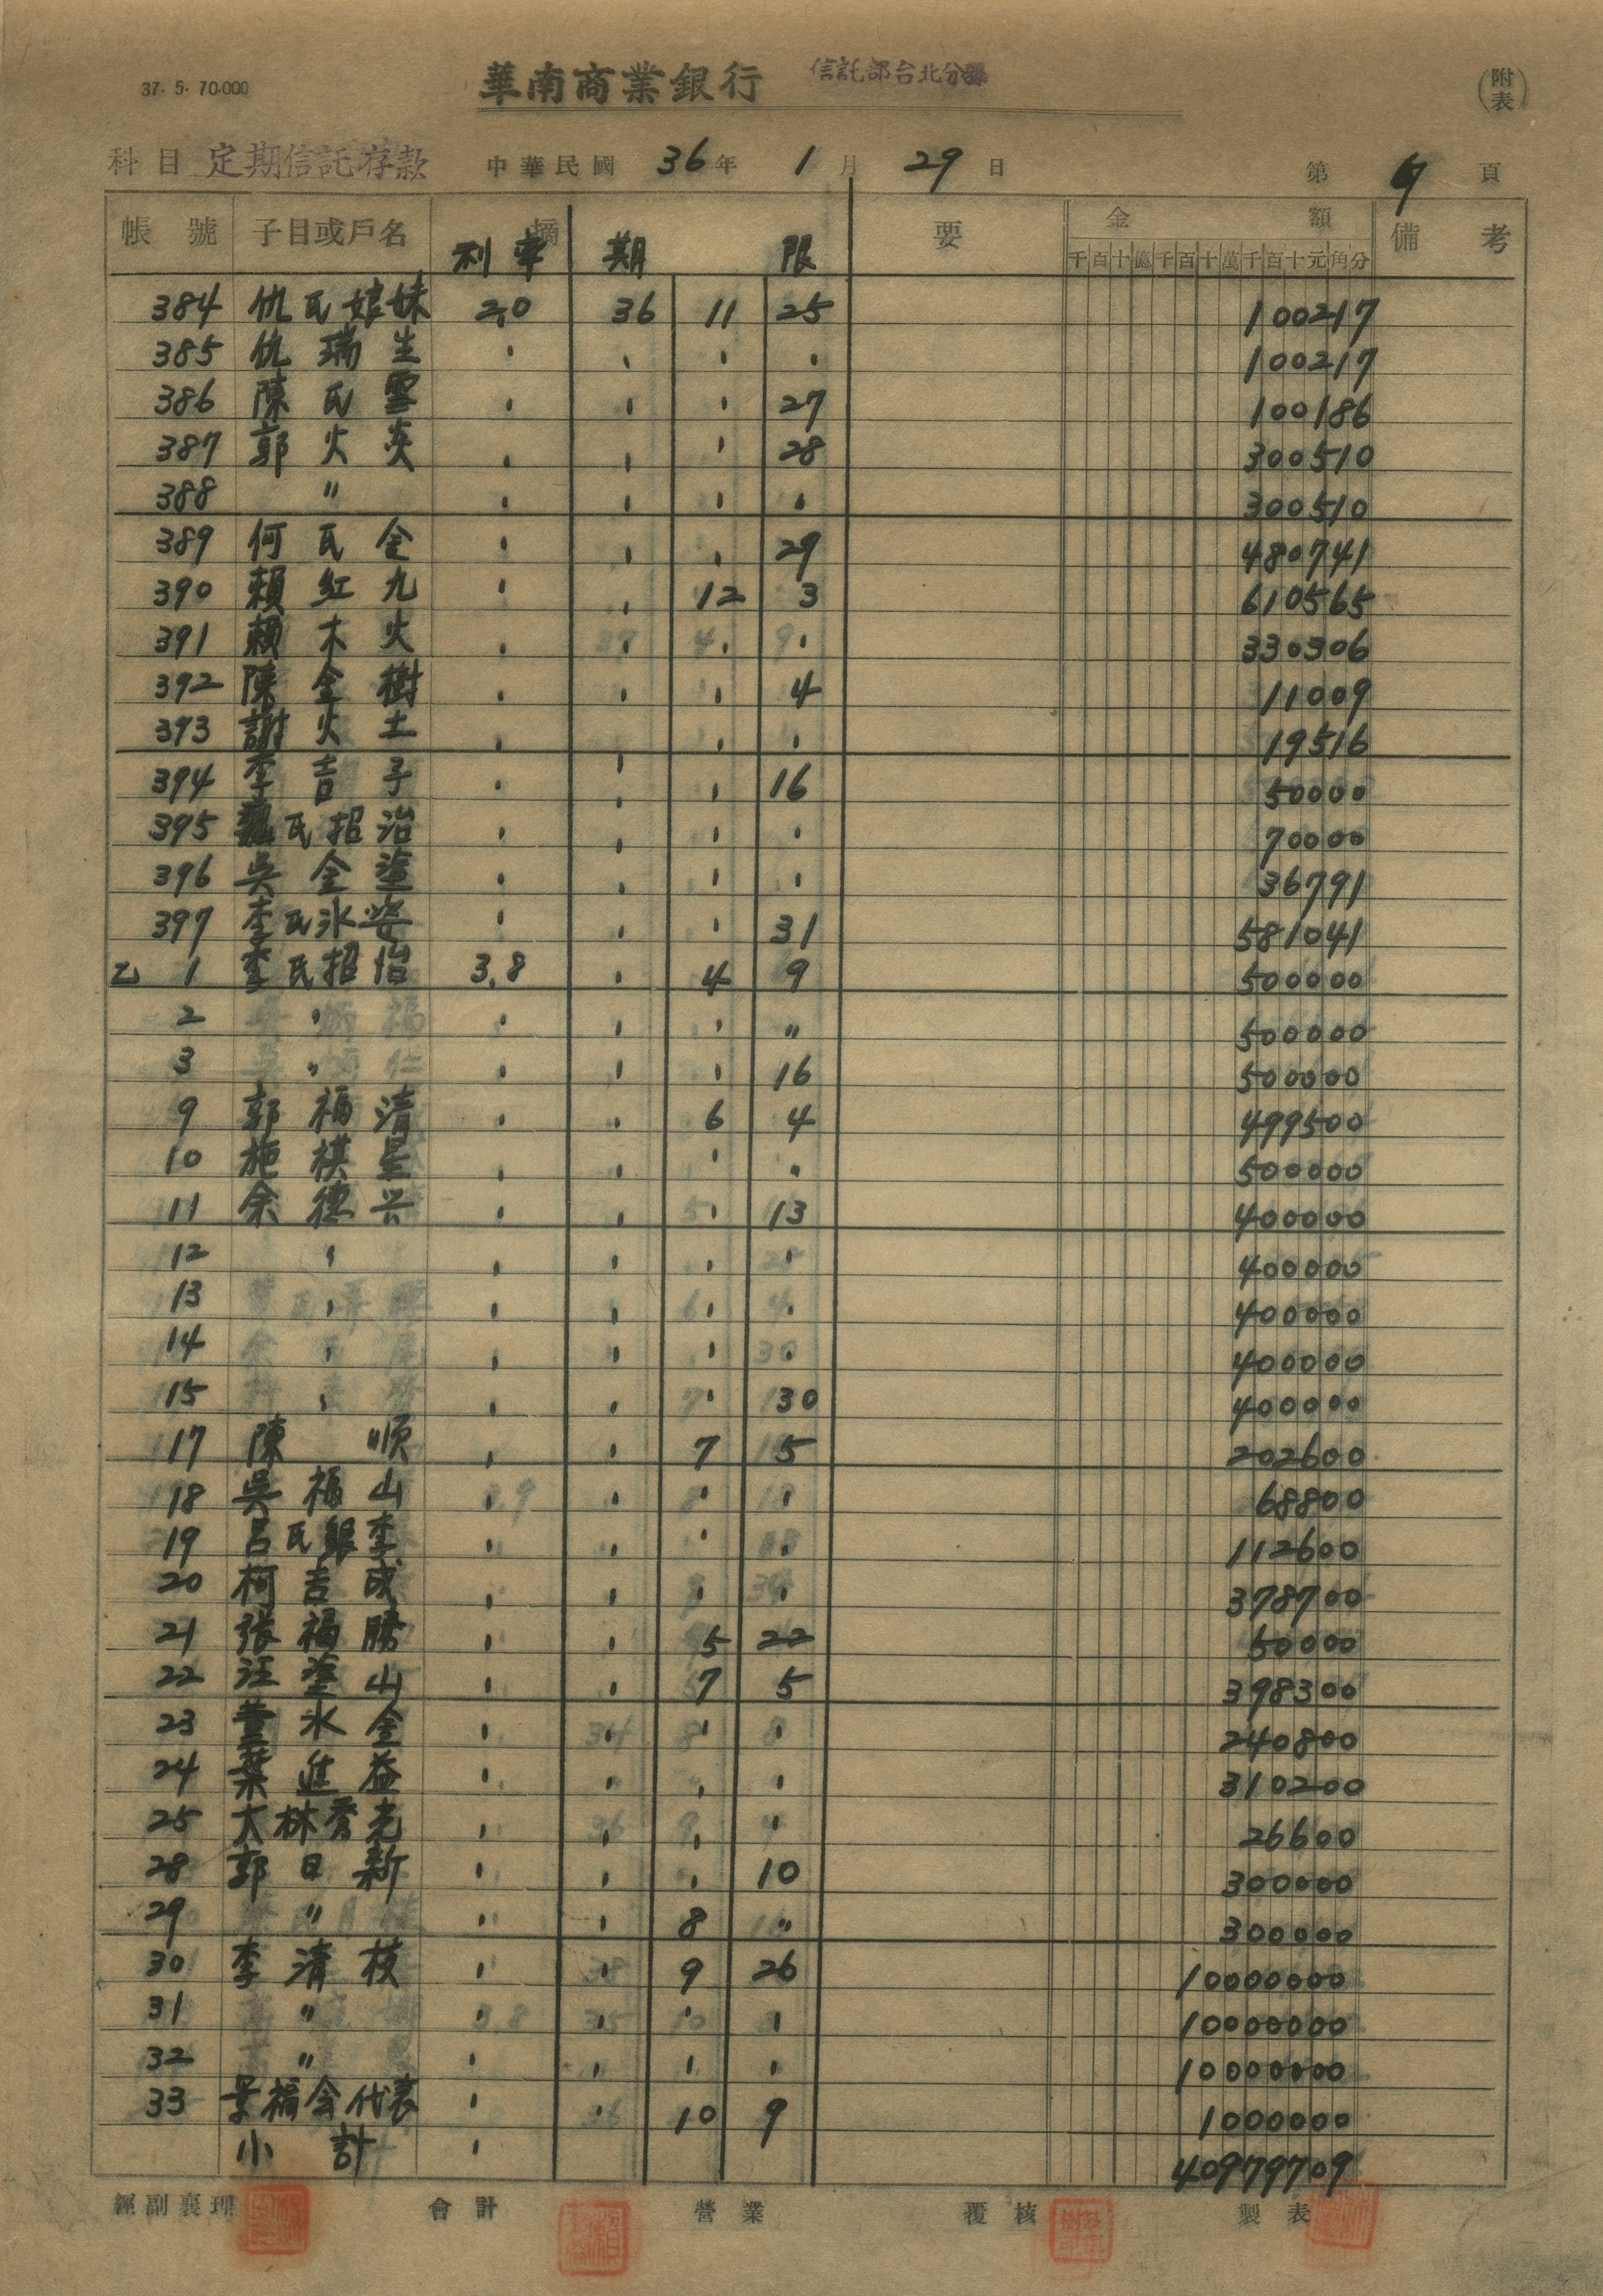 37. 5. 70.000
華南商業銀行 信託部台北分部
(附表)
科目 定期信託存款 中華民國 36年 1月 29日 第 頁
帳號 子目或戶名 摘要 金額 備考
利率 期限 千百十億千百十萬千百十元角分
384 仇氏娘妹 2.0 36 11 25 100217
385 仇瑞生 〃 〃 〃 〃 100217
386 陳氏雪 〃 〃 〃 27 100186
387 郭火炎 〃 〃 〃 28 300510
388 〃 〃 〃 〃 〃 300510
389 何氏金 〃 〃 〃 29 480741
390 賴紅九 〃 〃 12 3 610565
391 賴木火 〃 〃 〃 〃 330306
392 陳金樹 〃 〃 〃 4 11009
393 謝火土 〃 〃 〃 〃 19516
394 李吉子 〃 〃 〃 16 50000
395 魏氏招治 〃 〃 〃 〃 70000
396 吳金塗 〃 〃 〃 〃 36791
397 李氏氷姿 〃 〃 〃 31 581041
乙 1 李氏招怡 3.8 〃 4 9 500000
2 〃 〃 〃 〃 〃 500000
3 〃 〃 〃 〃 16 500000
9 郭福清 〃 〃 6 4 499500
10 施祺星 〃 〃 〃 〃 500000
11 余德兴 〃 〃 〃 13 400000
12 〃 〃 〃 〃 〃 400000
13 〃 〃 〃 〃 〃 400000
14 〃 〃 〃 〃 〃 400000
15 〃 〃 〃 〃 30 400000
17 陳順 〃 〃 7 5 202600
18 吳福山 〃 〃 〃 〃 68800
19 呂氏銀李 〃 〃 〃 〃 112600
20 柯吉成 〃 〃 〃 〃 378700
21 張福勝 〃 〃 5 22 50000
22 汪塗山 〃 〃 7 5 398300
23 董氷金 〃 〃 〃 〃 240800
24 葉進益 〃 〃 〃 〃 310200
25 大林秀光 〃 〃 〃 〃 26600
28 郭日新 〃 〃 〃 10 300000
29 〃 〃 〃 8 〃 300000
30 李清枝 〃 〃 9 26 10000000
31 〃 〃 〃 〃 〃 10000000
32 〃 〃 〃 〃 〃 10000000
33 景福会代表 〃 〃 10 9 1000000
小計 〃 40979709
經副襄理 會計 營業 覆核 製表